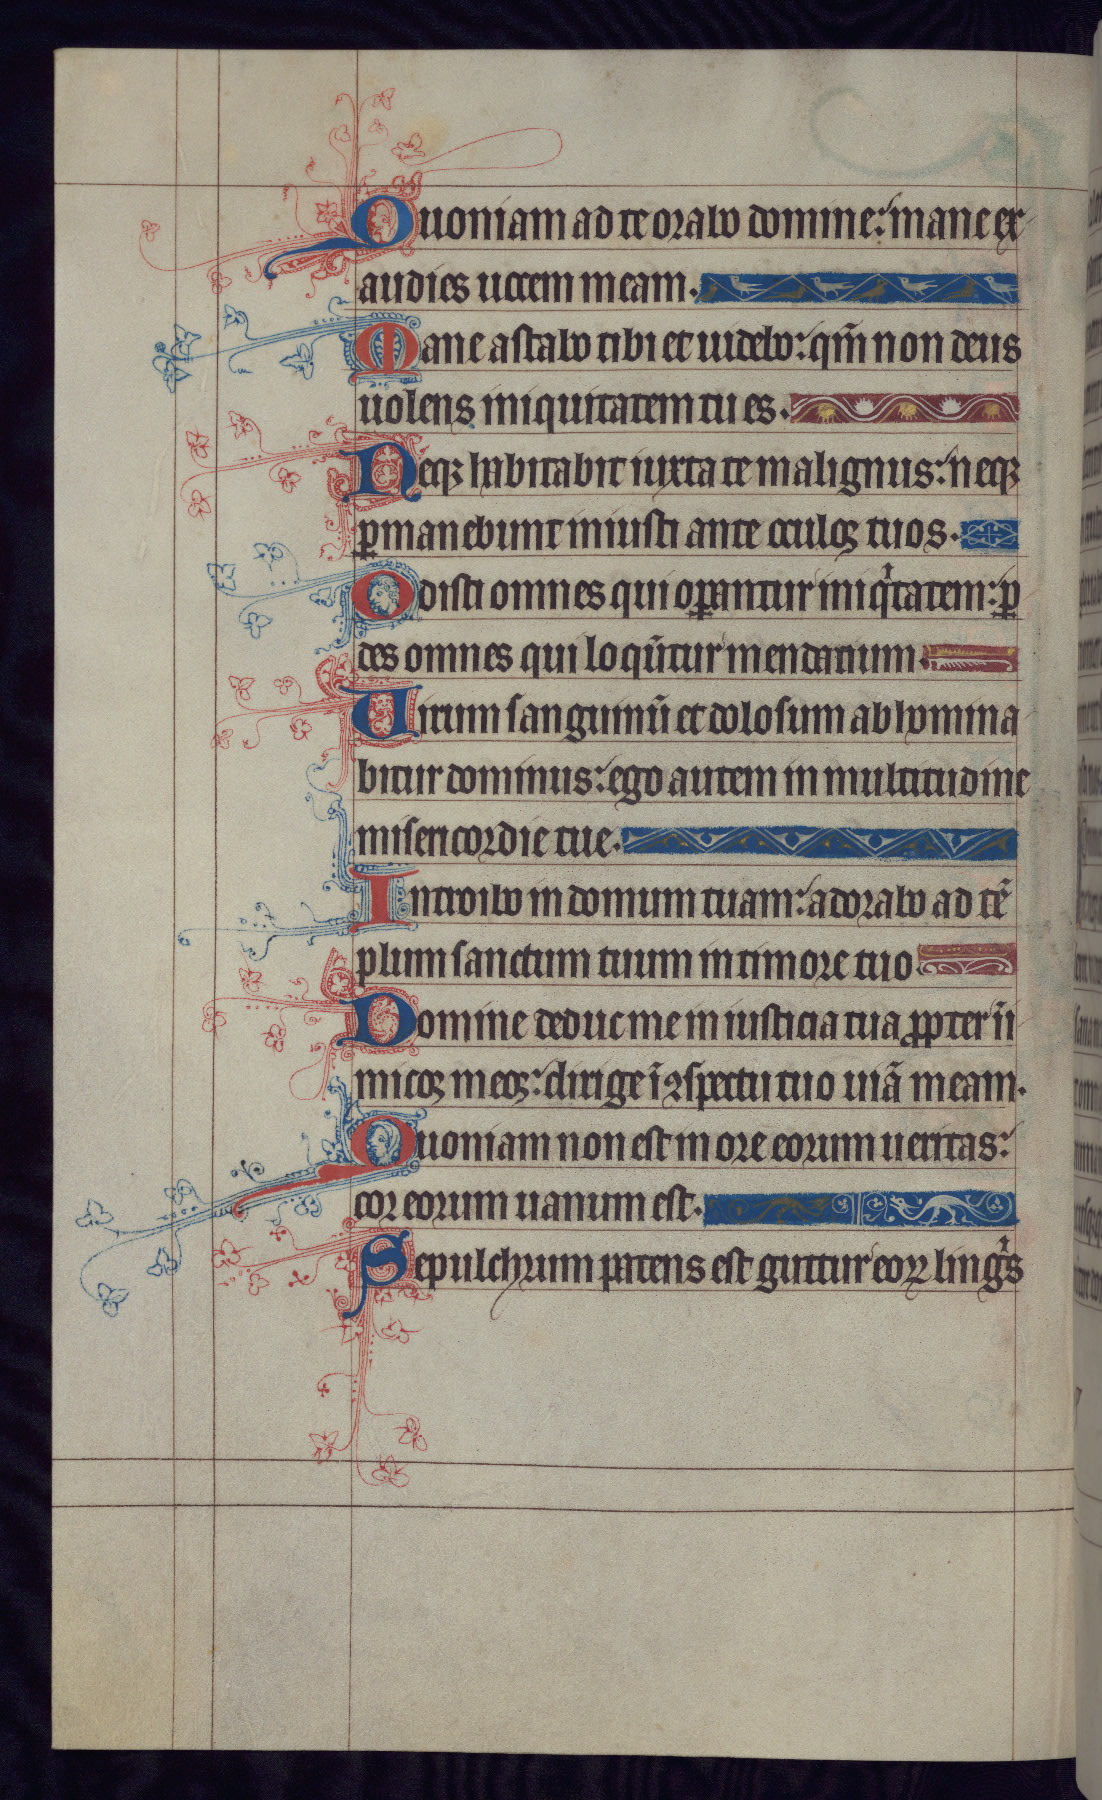 Quoniam ad te orabo domine: mane ex
audies uocem meam.
Mane astabo tibi et uidebo: qm̄ non deus
uolens iniquitatem tu es.
Neqꝫ habitabit iuxta te malignus: neqꝫ
ꝑmanebunt iniusti ante oculoꝫ tuos.
Odisti omnes qui oꝑantur iniqͥtatem: ꝑ
des omnes qui loqūtur mendacium.
Uirum sanguinū et dolosum abhomina
bitur dominus: ego autem in multitudine
misericordie tue.
Introibo in domum tuam: adorabo ad tē
plum sanctum tuum in timore tuo
Domine deduc me in iusticia tua ꝓpter īi
micoꝫ meoꝫ: dirige ī ꝯspectu tuo uiā meam.
Quoniam non est in ore eorum ueritas:
cor eorum uanum est.
Sepulchrum patens est guttur eoꝝ lingͥs